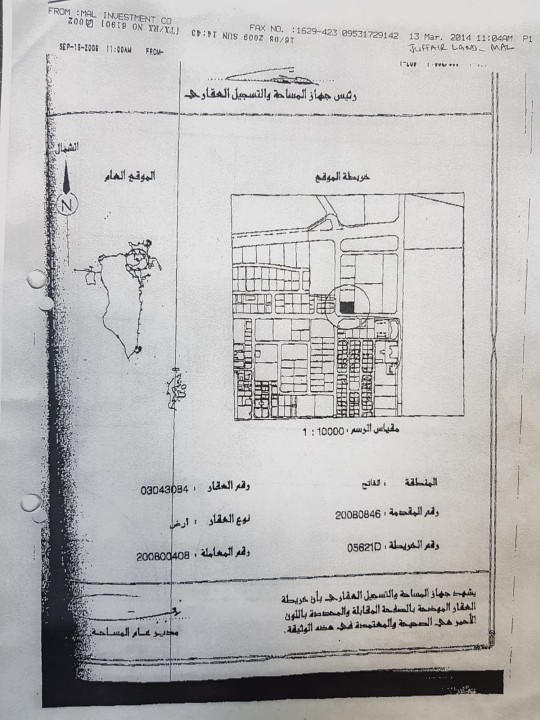 FROM :MAL INVESTMENT CO
FAX NO. :1629-423 09531729142
13 Mar. 2014 11:04AM P1
JUFFAIR LAND_ MAL
18/09 2008 SUN 14:43 [TX/RX NO 8190] @002
SEP-15-2008 11:00AM FROM-
رئيس جهاز المساحة والتسجيل العقاري
الشمال
N
الموقع العام
خريطة الموقع
مقياس الرسم، 10000 : 1
المنطقة : الفاتح
رقم العقار : 03043084
رقم المقدمة : 20080846
نوع العقار : أرض
رقم الخريطة : 05621D
رقم المعاملة : 200800408
يشهد جهاز المساحة والتسجيل العقاري بأن خريطة
العقار الموضحة بالصفحة المقابلة والمحددة باللون
الأحمر هي الصحيحة والمعتمدة في هذه الوثيقة.
مدير عام المساحة